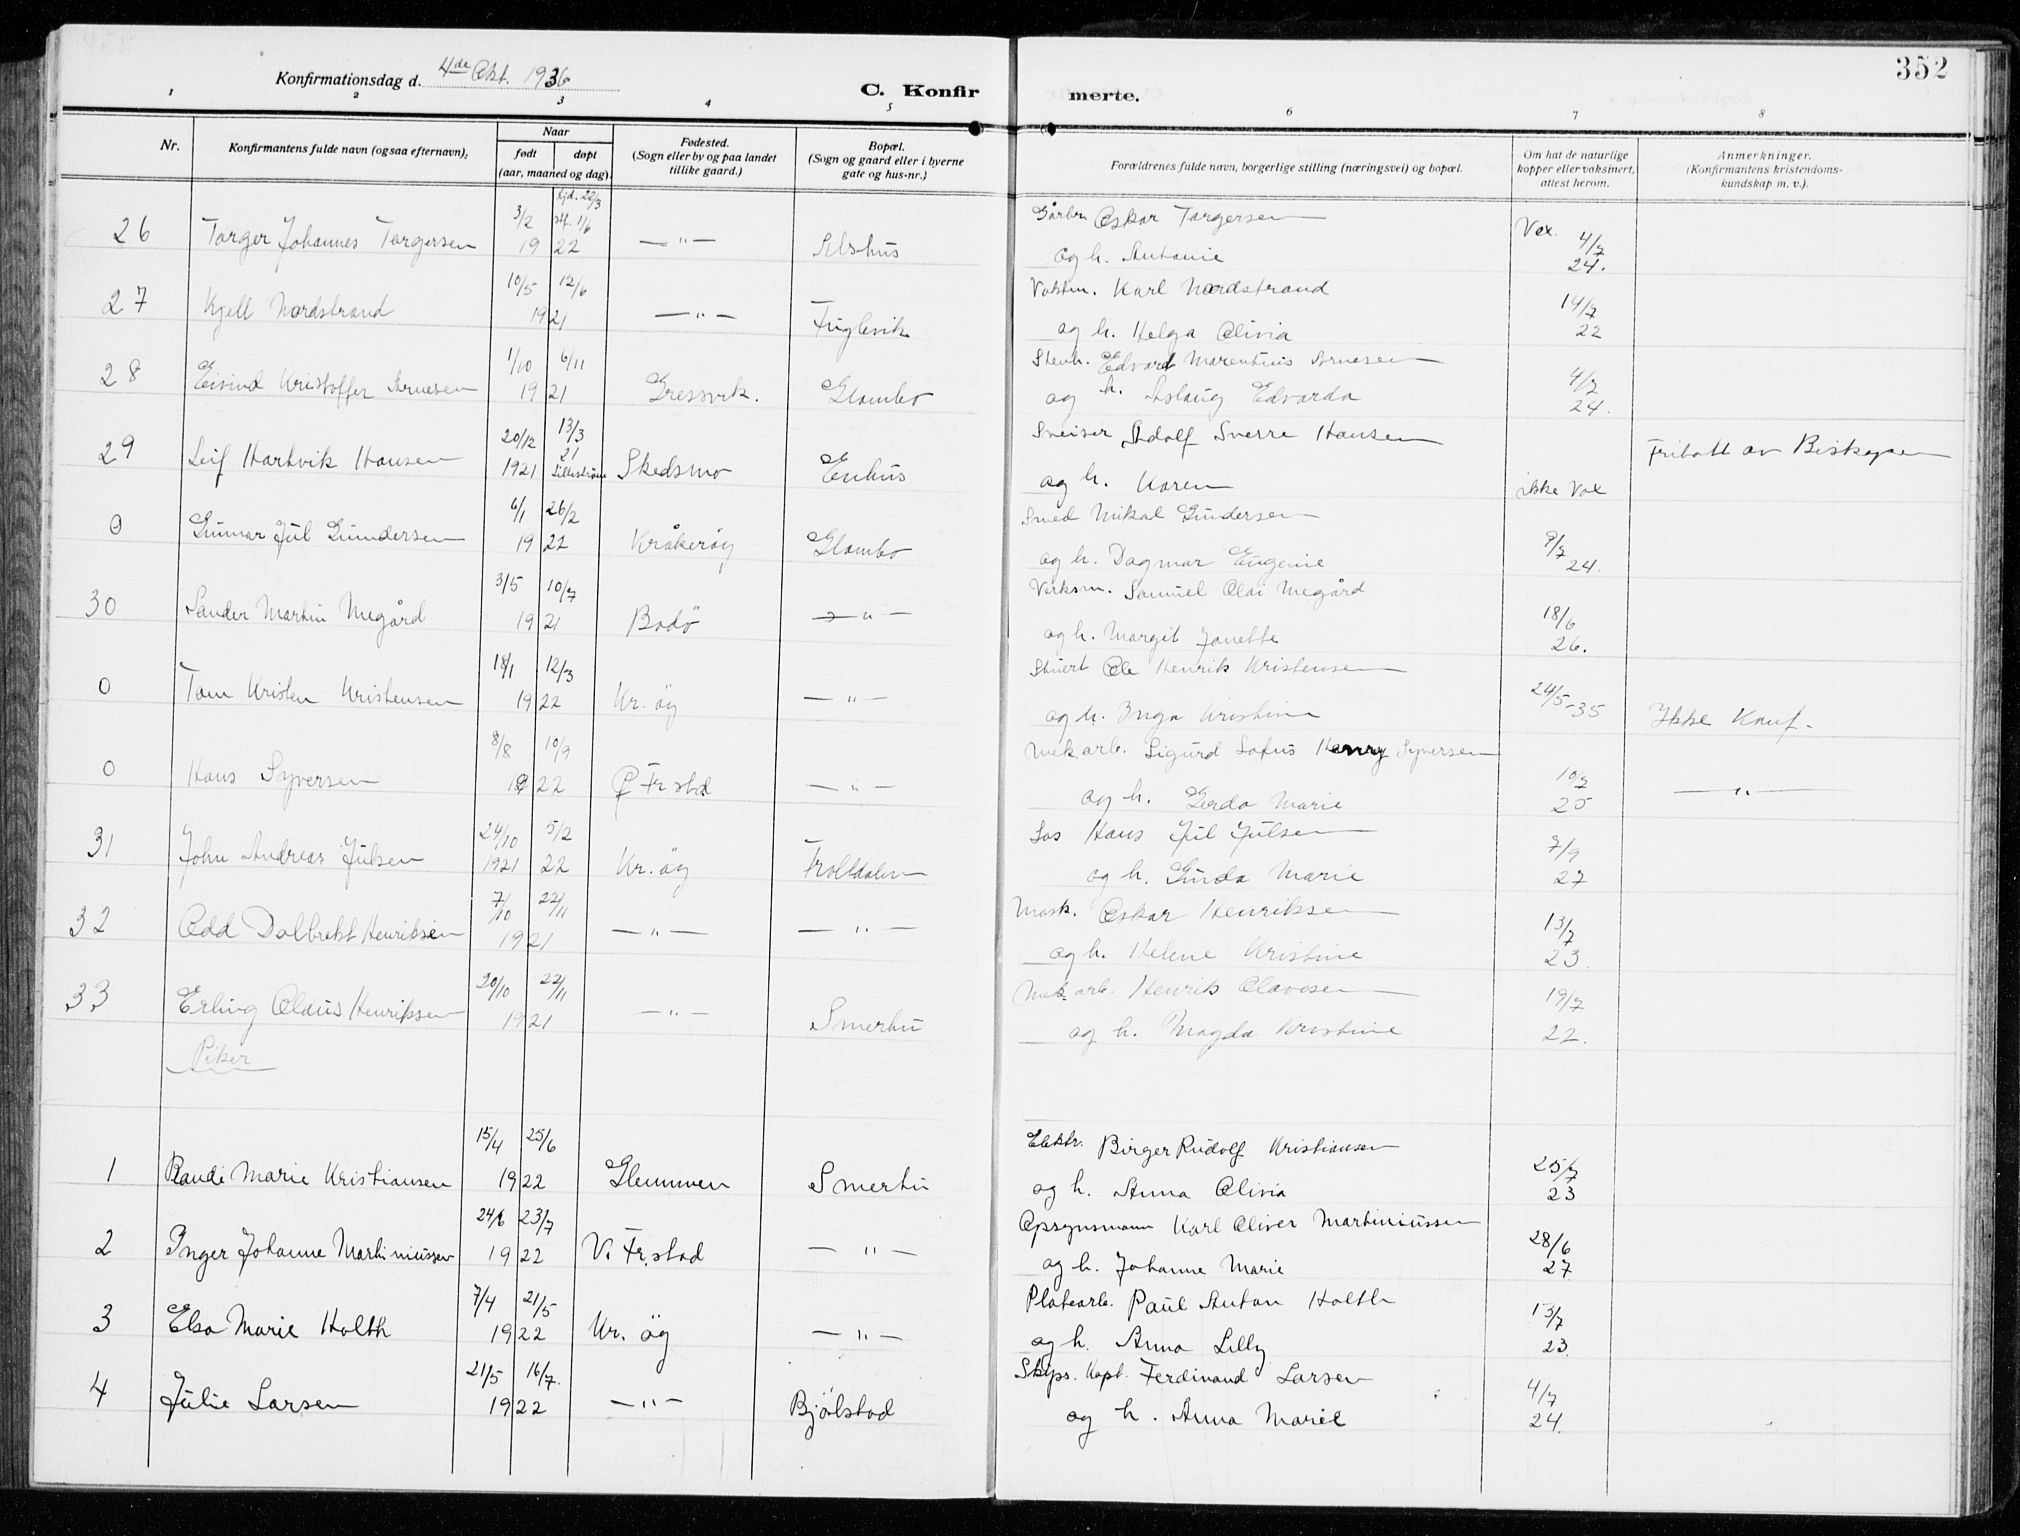 352
Konfirmationsdag d. 4de Okt. 1936
C. Konfirmerte.
1 2 3 4 5 6 7 8
Nr.
Konfirmantens fulde navn (ogsaa efternavn).
Naar
født døpt
(aar, maaned og dag).
Fødested.
(Sogn eller by og paa landet
tillike gaard.)
Bopæl.
(Sogn og gaard eller i byerne
gate og hus-nr.)
Forældrenes fulde navn, borgerlige stilling (næringsvei) og bopæl.
Om hat de naturlige
kopper eller vaksinert,
attest herom.
Anmerkninger.
(Konfirmantens kristendoms-
kundskap m. v.).
hjd. 22/3
3/2 st. 11/6 Gårbr. Oskar Torgersen Vax. 4/7
26 Torger Johannes Torgersen 19 22 — " — Alshus og h. Antonie 24.
10/5 12/6 Vaktm. Karl Nordstrand 14/7
27 Kjell Nordstrand 19 21 — " — Fuglevik og h. Helga Olivia 22
1/10 6/11 Stenh. Edvard Marentius Arnesen 4/7
28 Eivind Kristoffer Arnesen 19 21 Gressvik. Glombo og h. Aslaug Edvarda 24.
20/12 13/3 21 Sveiser Adolf Sverre Hansen
29 Leif Hartvik Hansen 1921 Lillestrøm Skedsmo Enhus og h. Karen ikke Vax Fritatt av Biskopen
6/1 26/2 Smed Mikal Gundersen 9/7
0 Gunnar Jul Gundersen 19 22 Kråkerøy Glombo og h. Dagmar Eugenie 24.
3/5 10/7 Verksm. Samuel Olai Megård 18/6
30 Sander Martin Megård 19 21 Bodö — " — og h. Margit Janette 26.
18/1 12/3 Stuert Ole Henrik Kristensen 24/5-35
0 Tom Kristen Kristensen 19 22 Kr. öy — " — og h. Inga Kristine Ikke Konf.
8/8 10/9 Mek arb. Sigurd Lofus Henry Syversen 10/7
0 Hans Syversen 19 22 Ø Fr.stad — " — og h. Gerda Marie 25 — " —
24/10 5/2 Los Hans Jul Julsen 7/9
31 John Andreas Julsen 1921 22 Kr. öy Trolldalen og h. Gunda Marie 27
7/10 22/11 Mask. Oskar Henriksen 13/7
32 Odd Dalbrekt Henriksen 19 21 — " — — " — og h. Helene Kristine 23
20/10 22/11 Mek arb. Henrik Olavesen 19/7
33 Erling Olaus Henriksen 19 21 — " — Smertu og h. Magda Kristine 22.
Piker
15/4 25/6 Elektr. Birger Rudolf Kristiansen 25/7
1 Randi Marie Kristiansen 19 22 Glemmen Smertu og h. Anna Olivia 23
24/6 23/7 Opsynsmann Karl Oliver Martiniussen 28/6
2 Inger Johanne Martiniussen 19 22 V. Fr.stad — " — og h. Johanne Marie 27
7/4 21/5 Platearb. Paul Anton Holth 13/7
3 Elsa Marie Holth 19 22 Kr. öy — " — og h. Anna Lilly 23.
21/5 16/7. Skips. Kapt. Ferdinand Larsen 4/7
4 Julie Larsen 19 22 — " — Bjölstad og h. Anna Marie 24.